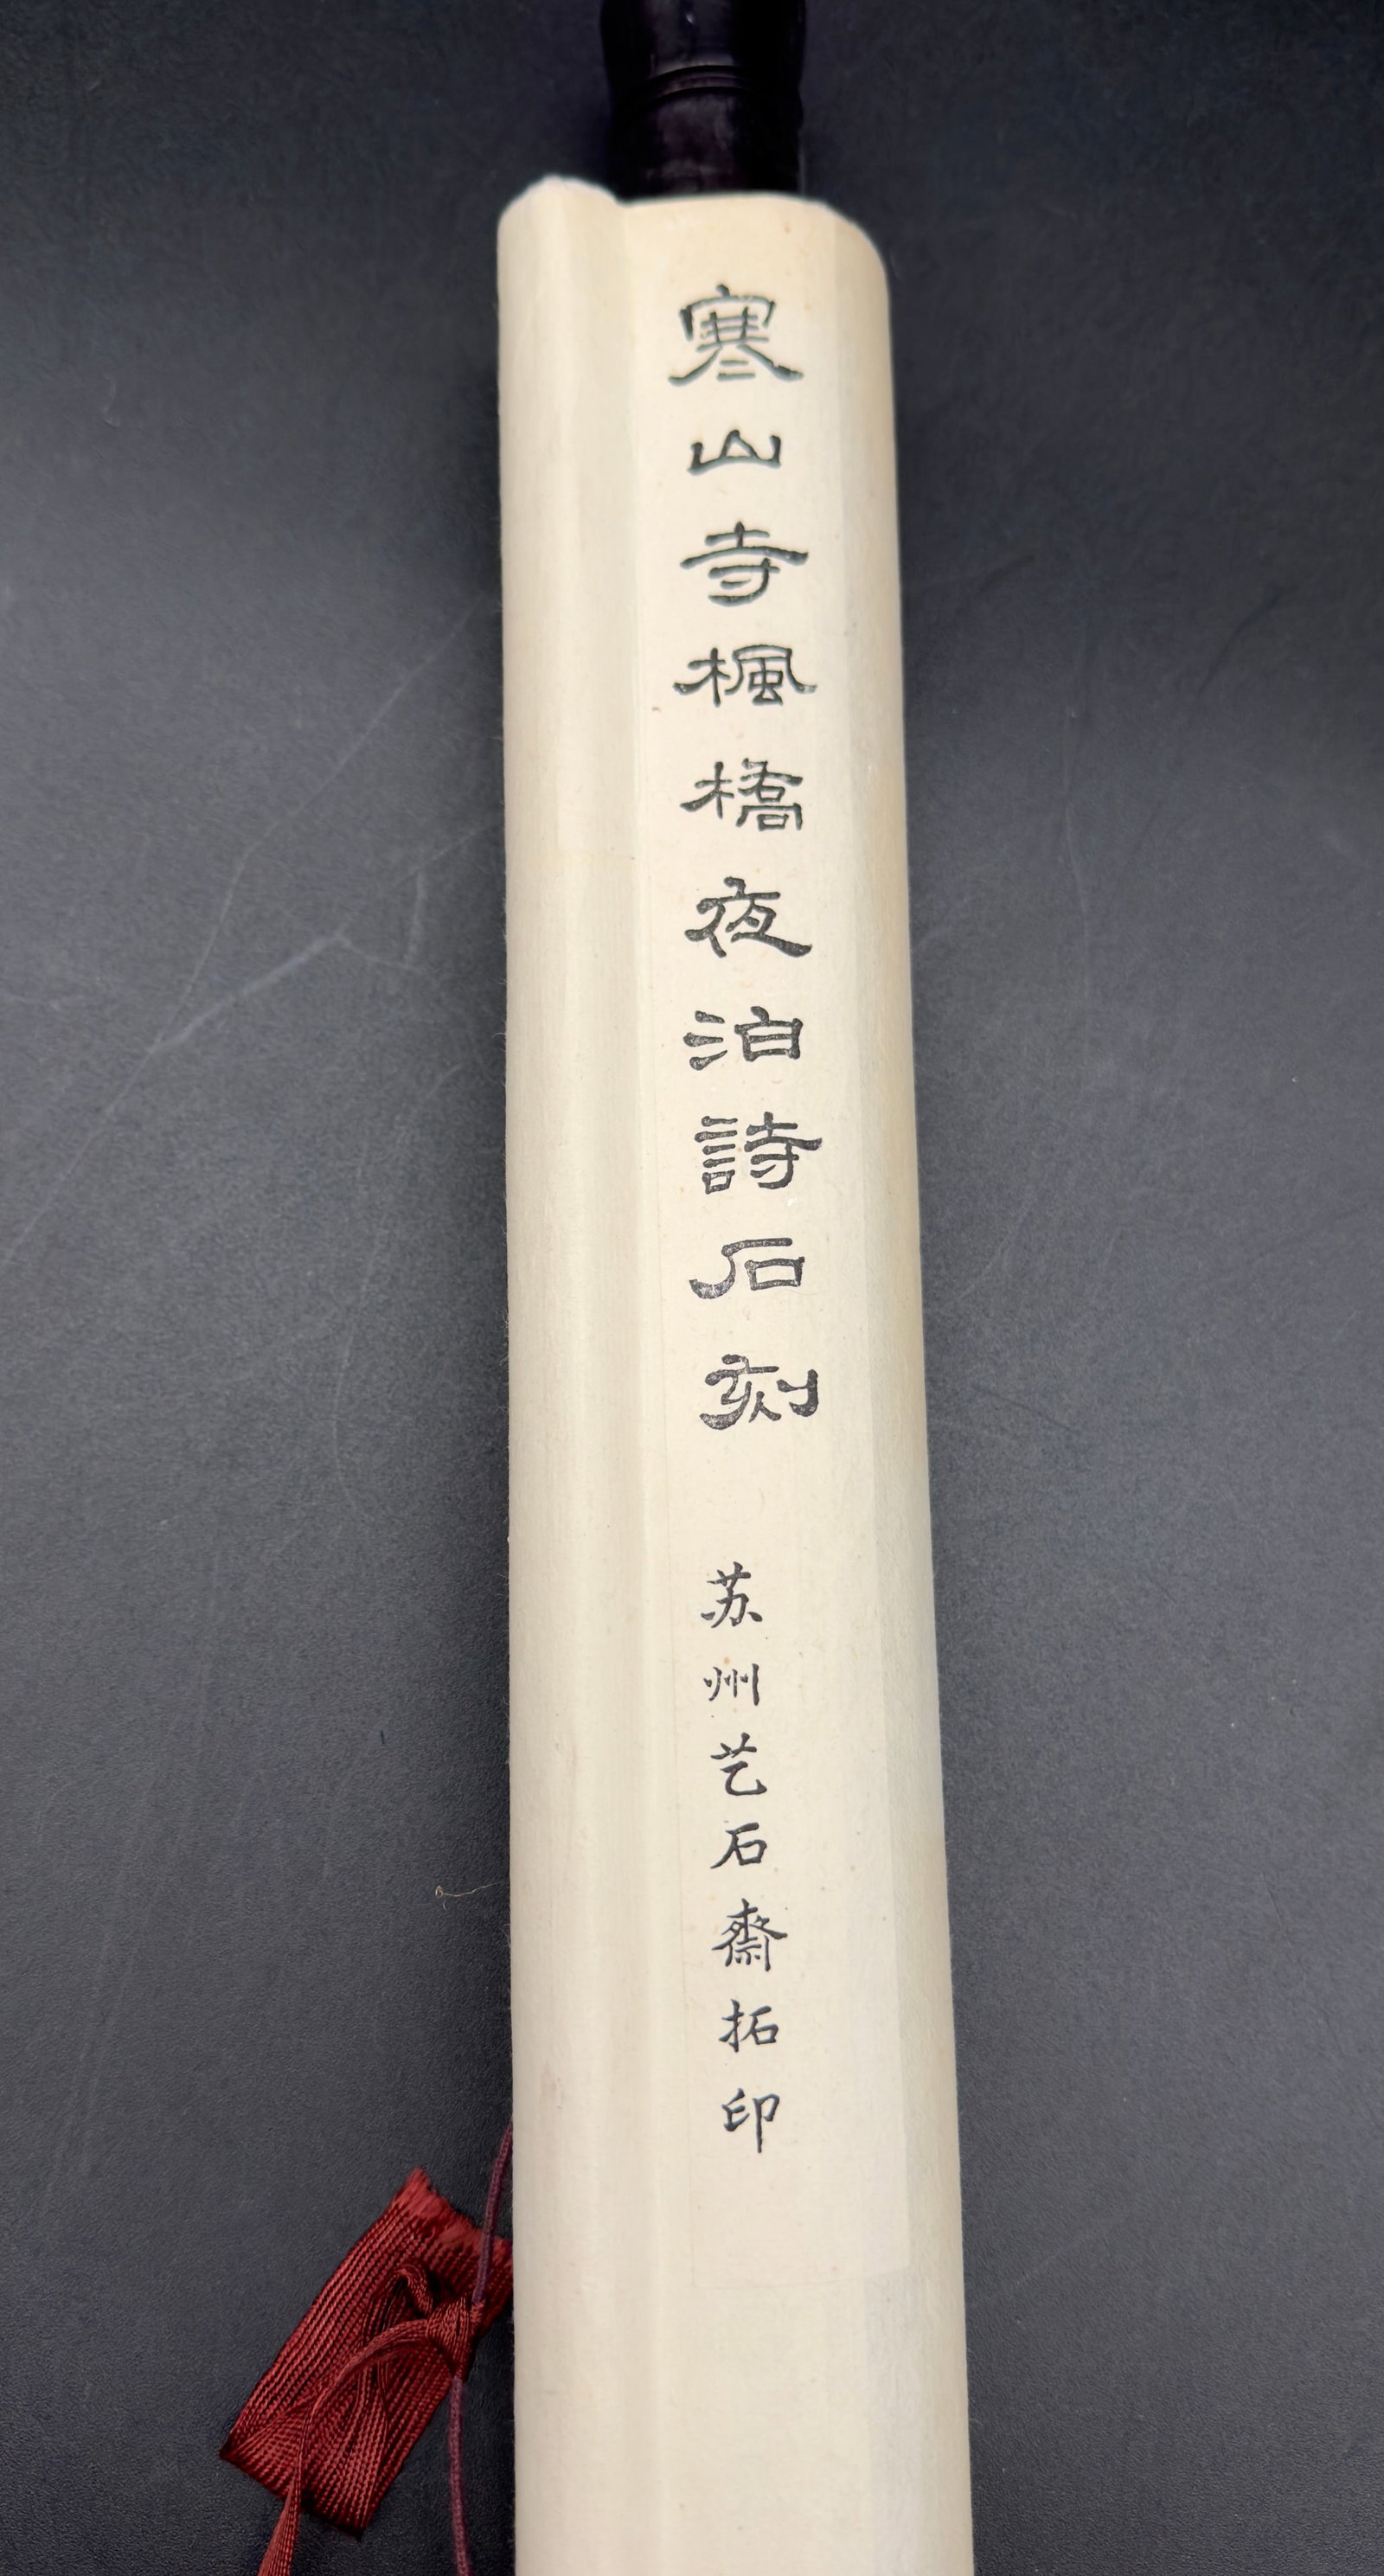 寒山寺楓橋夜泊詩石刻
苏州艺石齋拓印